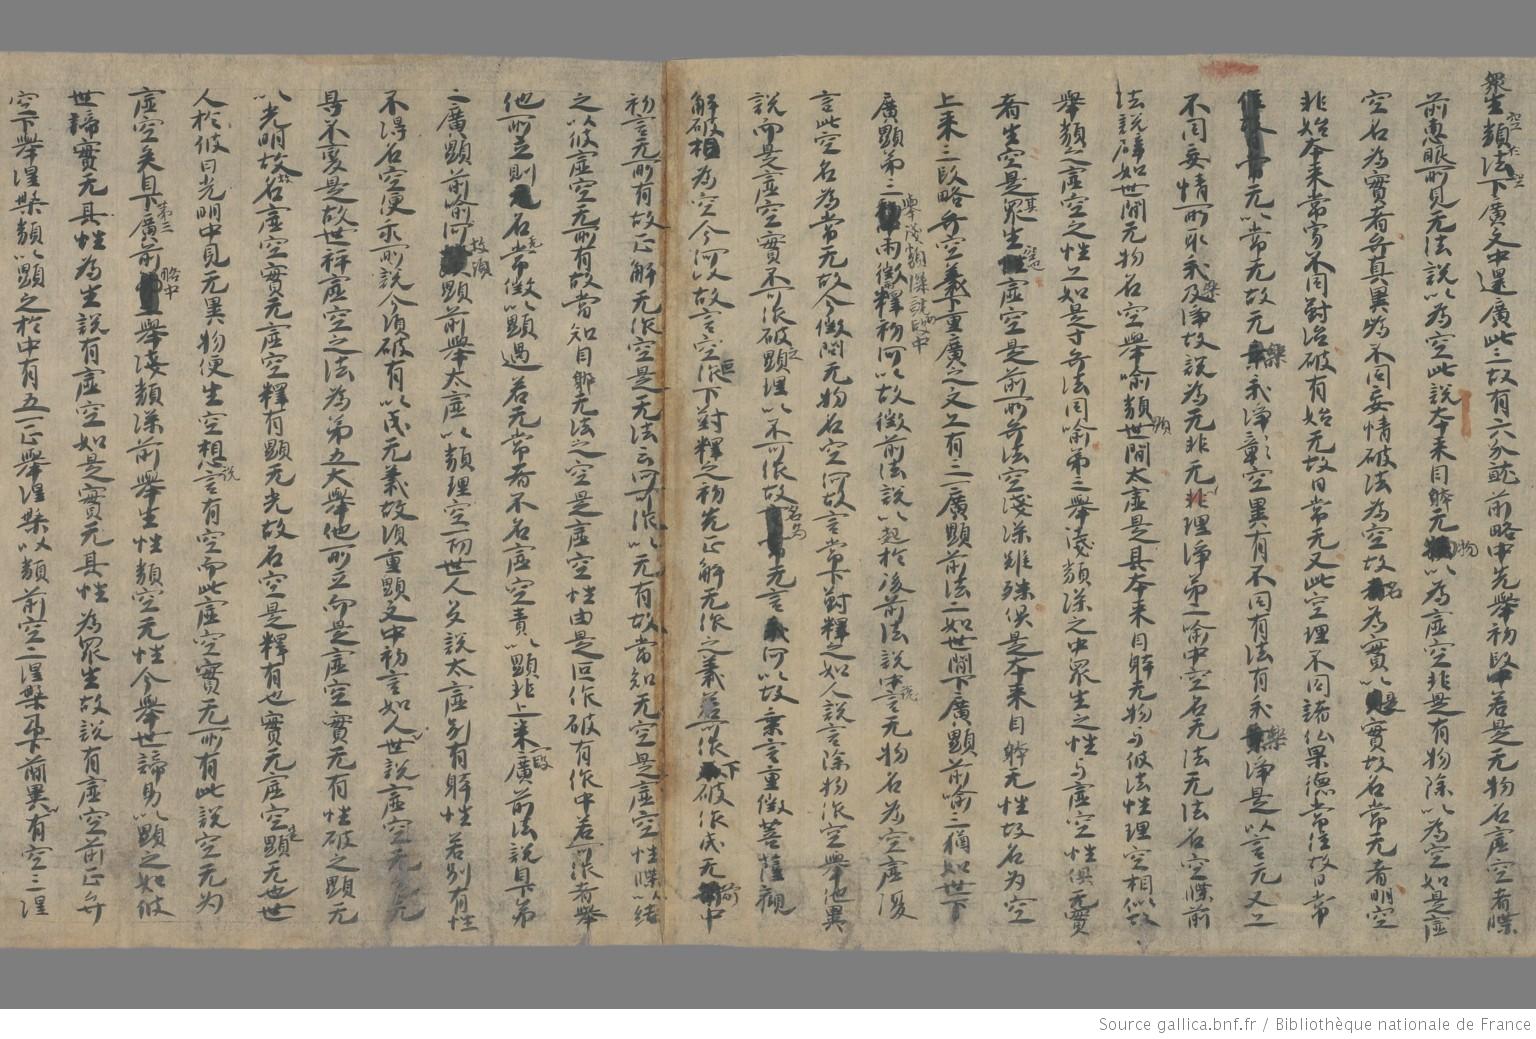 眾生類法下廣文中還廣此三故有六分就前略中先舉初段中若是无物名虛空者牒
前惠眼所見无法說以為空此說本来自體无物以為虛空非是有物除以為空如是虛
空名為實者弁真異妄不同妄情破法為空故名為實以是實故名常无者明空
非始本来常寂不同對治破有始无故曰常无又此空理不同諸仏果德常住故曰常
无以常无故无樂我淨彰空異有不同有法有我樂淨是以言无又亦
不同妄情所取我樂及淨故說為无非无理淨第二喻中空名无法无法名空牒前
法說譬如世間无物名空舉喻類顯世間太虛是其本来自體无物与彼法性理空相似故
舉類之虛空之性亦如是下弁法同喻第三舉淺類深之中眾生之性与虛空性俱无實
者生空是其眾生虛空是前所弁法空淺深雖殊俱是本来自體无性故名為空
上来三段略弁空義下重廣之文亦有三一廣顯前法二如世間下廣顯前喻三猶如世下
廣顯第三舉淺類深就初段中兩徵釋初何以故徵前法說以起於後前法說中說言无物名為空虛復
言此空名為常无故今徵問无物名空何故言常下對釋之如人說言除物作空舉他異
說而是虛空實不可作破顯正理以不可作故名為常无言何以故乘言重徵菩薩觀
解破相為空今何以故言空叵作下對釋之初先正解无作之義若可作下破作成无於中
初言无所有故正解无作空是无法云何可作以无有故當知无空是虛空性牒以結
之以彼虛空无所有故當知自體无法之空是虛空性由是叵作破有作中若可作者舉
他所立則名无常徵以顯過若无常者不名虛空責以顯非上来一段廣前法說自下第
二廣顯前喻何故須顯前舉太虛以類理空一切世人多說太虛別有體性若別有性
不得名空便乖所說今須破有以成无義故須重顯文中初言如人世說虛空无色无
㝵不變是故世稱虛空之法為第五大舉他所立而是虛空實无有性破之顯无
以光明故故名虛空實无虛空釋有顯无光故名空是釋有也實无虛空是顯无也世
人於彼日光明中見无異物便生空想說言有空而此虛空實无所有此說空无為
虛空矣自下第三廣前略中舉淺類深前舉生性類空无性今舉世諦助以顯之如彼
世諦實无其性為生說有虛空如是實无其性為眾生故說有虛空前正弁
空下舉涅槃類以顯之於中有五一正舉涅槃以類前空二涅槃即下簡異有空三涅
Source gallica.bnf.fr / Bibliothèque nationale de France